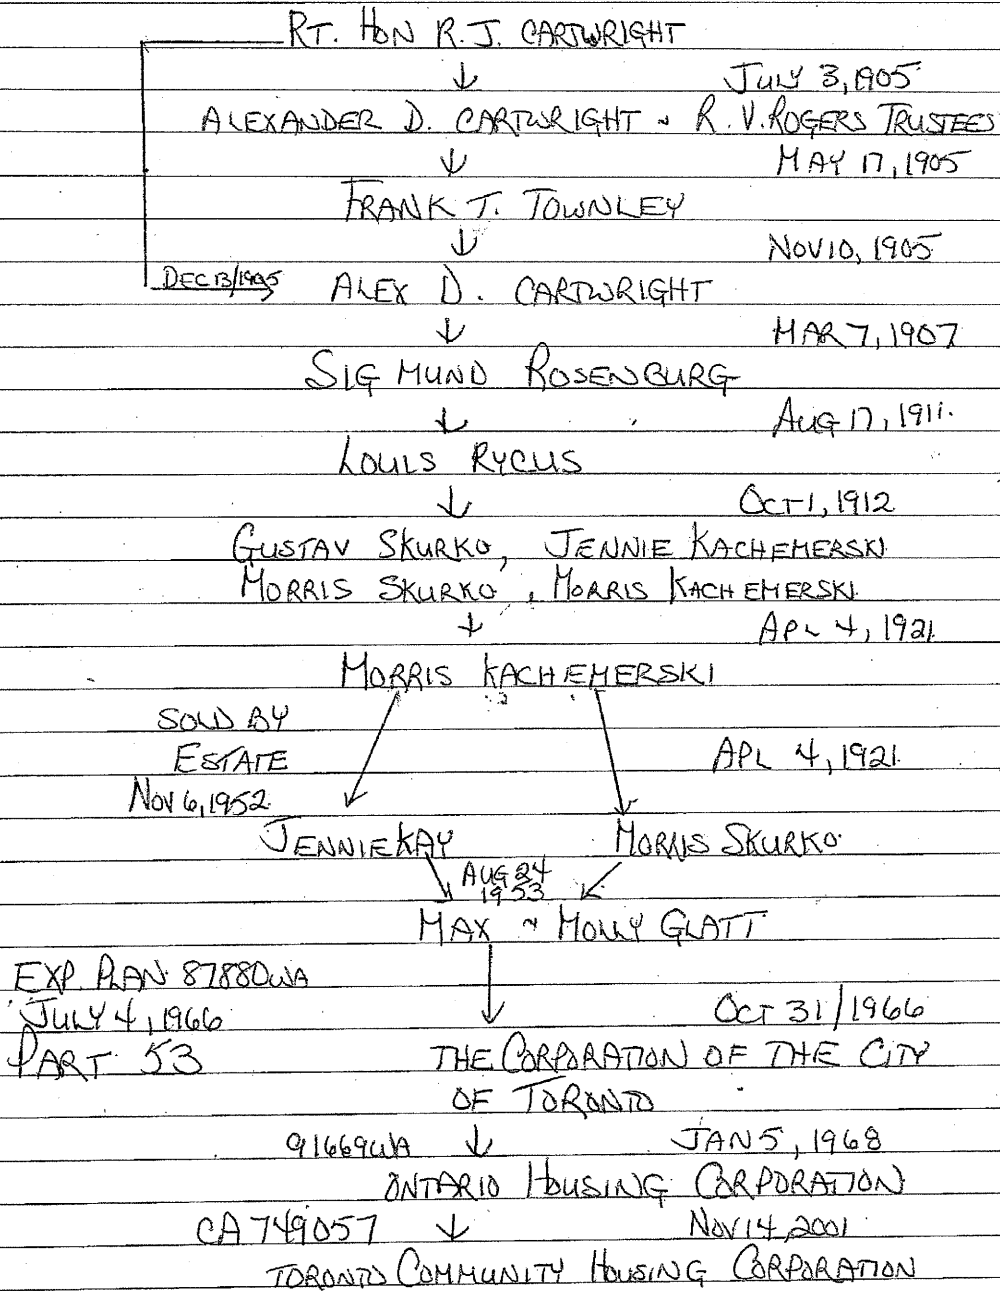 RT. HON R.J. CARTWRIGHT
JULY 3, 1905
ALEXANDER D. CARTWRIGHT ~ R.V. ROGERS TRUSTEES
MAY 17, 1905
FRANK T. TOWNLEY
NOV 10, 1905
DEC 13/1905
ALEX D. CARTWRIGHT
MAR 7, 1907
SIGMUND ROSENBURG
AUG 17, 1911.
LOUIS RYCUS
OCT 1, 1912
GUSTAV SKURKO, JENNIE KACHEMERSKI
MORRIS SKURKO, MORRIS KACHEMERSKI
APL 4, 1921
MORRIS KACHEMERSKI
SOLD BY
ESTATE
APL 4, 1921
NOV 6, 1952
JENNIE KAY MORRIS SKURKO
AUG 24
1953
MAX ~ MOLLY GLATT
EXP. PLAN 87880WA
JULY 4, 1966 OCT 31/1966
PART 53 THE CORPORATION OF THE CITY
OF TORONTO
91669WA JAN 5, 1968
ONTARIO HOUSING CORPORATION
CA 749057 NOV 14, 2001
TORONTO COMMUNITY HOUSING CORPORATION